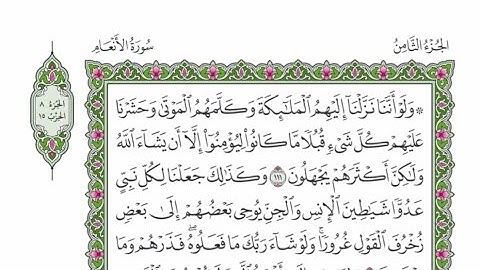 الجُزْءُ الثَّامِنُ
سُورَةُ الأَنْعَام
الجُزْءُ ٨
الحِزْبُ ١٥
۞ وَلَوْ أَنَّنَا نَزَّلْنَا إِلَيْهِمُ الْمَلَٰٓئِكَةَ وَكَلَّمَهُمُ الْمَوْتَىٰ وَحَشَرْنَا
عَلَيْهِمْ كُلَّ شَىْءٍ قُبُلًا مَّا كَانُوا۟ لِيُؤْمِنُوٓا۟ إِلَّآ أَن يَشَآءَ اللَّهُ
وَلَٰكِنَّ أَكْثَرَهُمْ يَجْهَلُونَ ١١١ وَكَذَٰلِكَ جَعَلْنَا لِكُلِّ نَبِىٍّ
عَدُوًّا شَيَٰطِينَ الْإِنسِ وَالْجِنِّ يُوحِى بَعْضُهُمْ إِلَىٰ بَعْضٍ
زُخْرُفَ الْقَوْلِ غُرُورًا ۚ وَلَوْ شَآءَ رَبُّكَ مَا فَعَلُوهُ ۖ فَذَرْهُمْ وَمَا